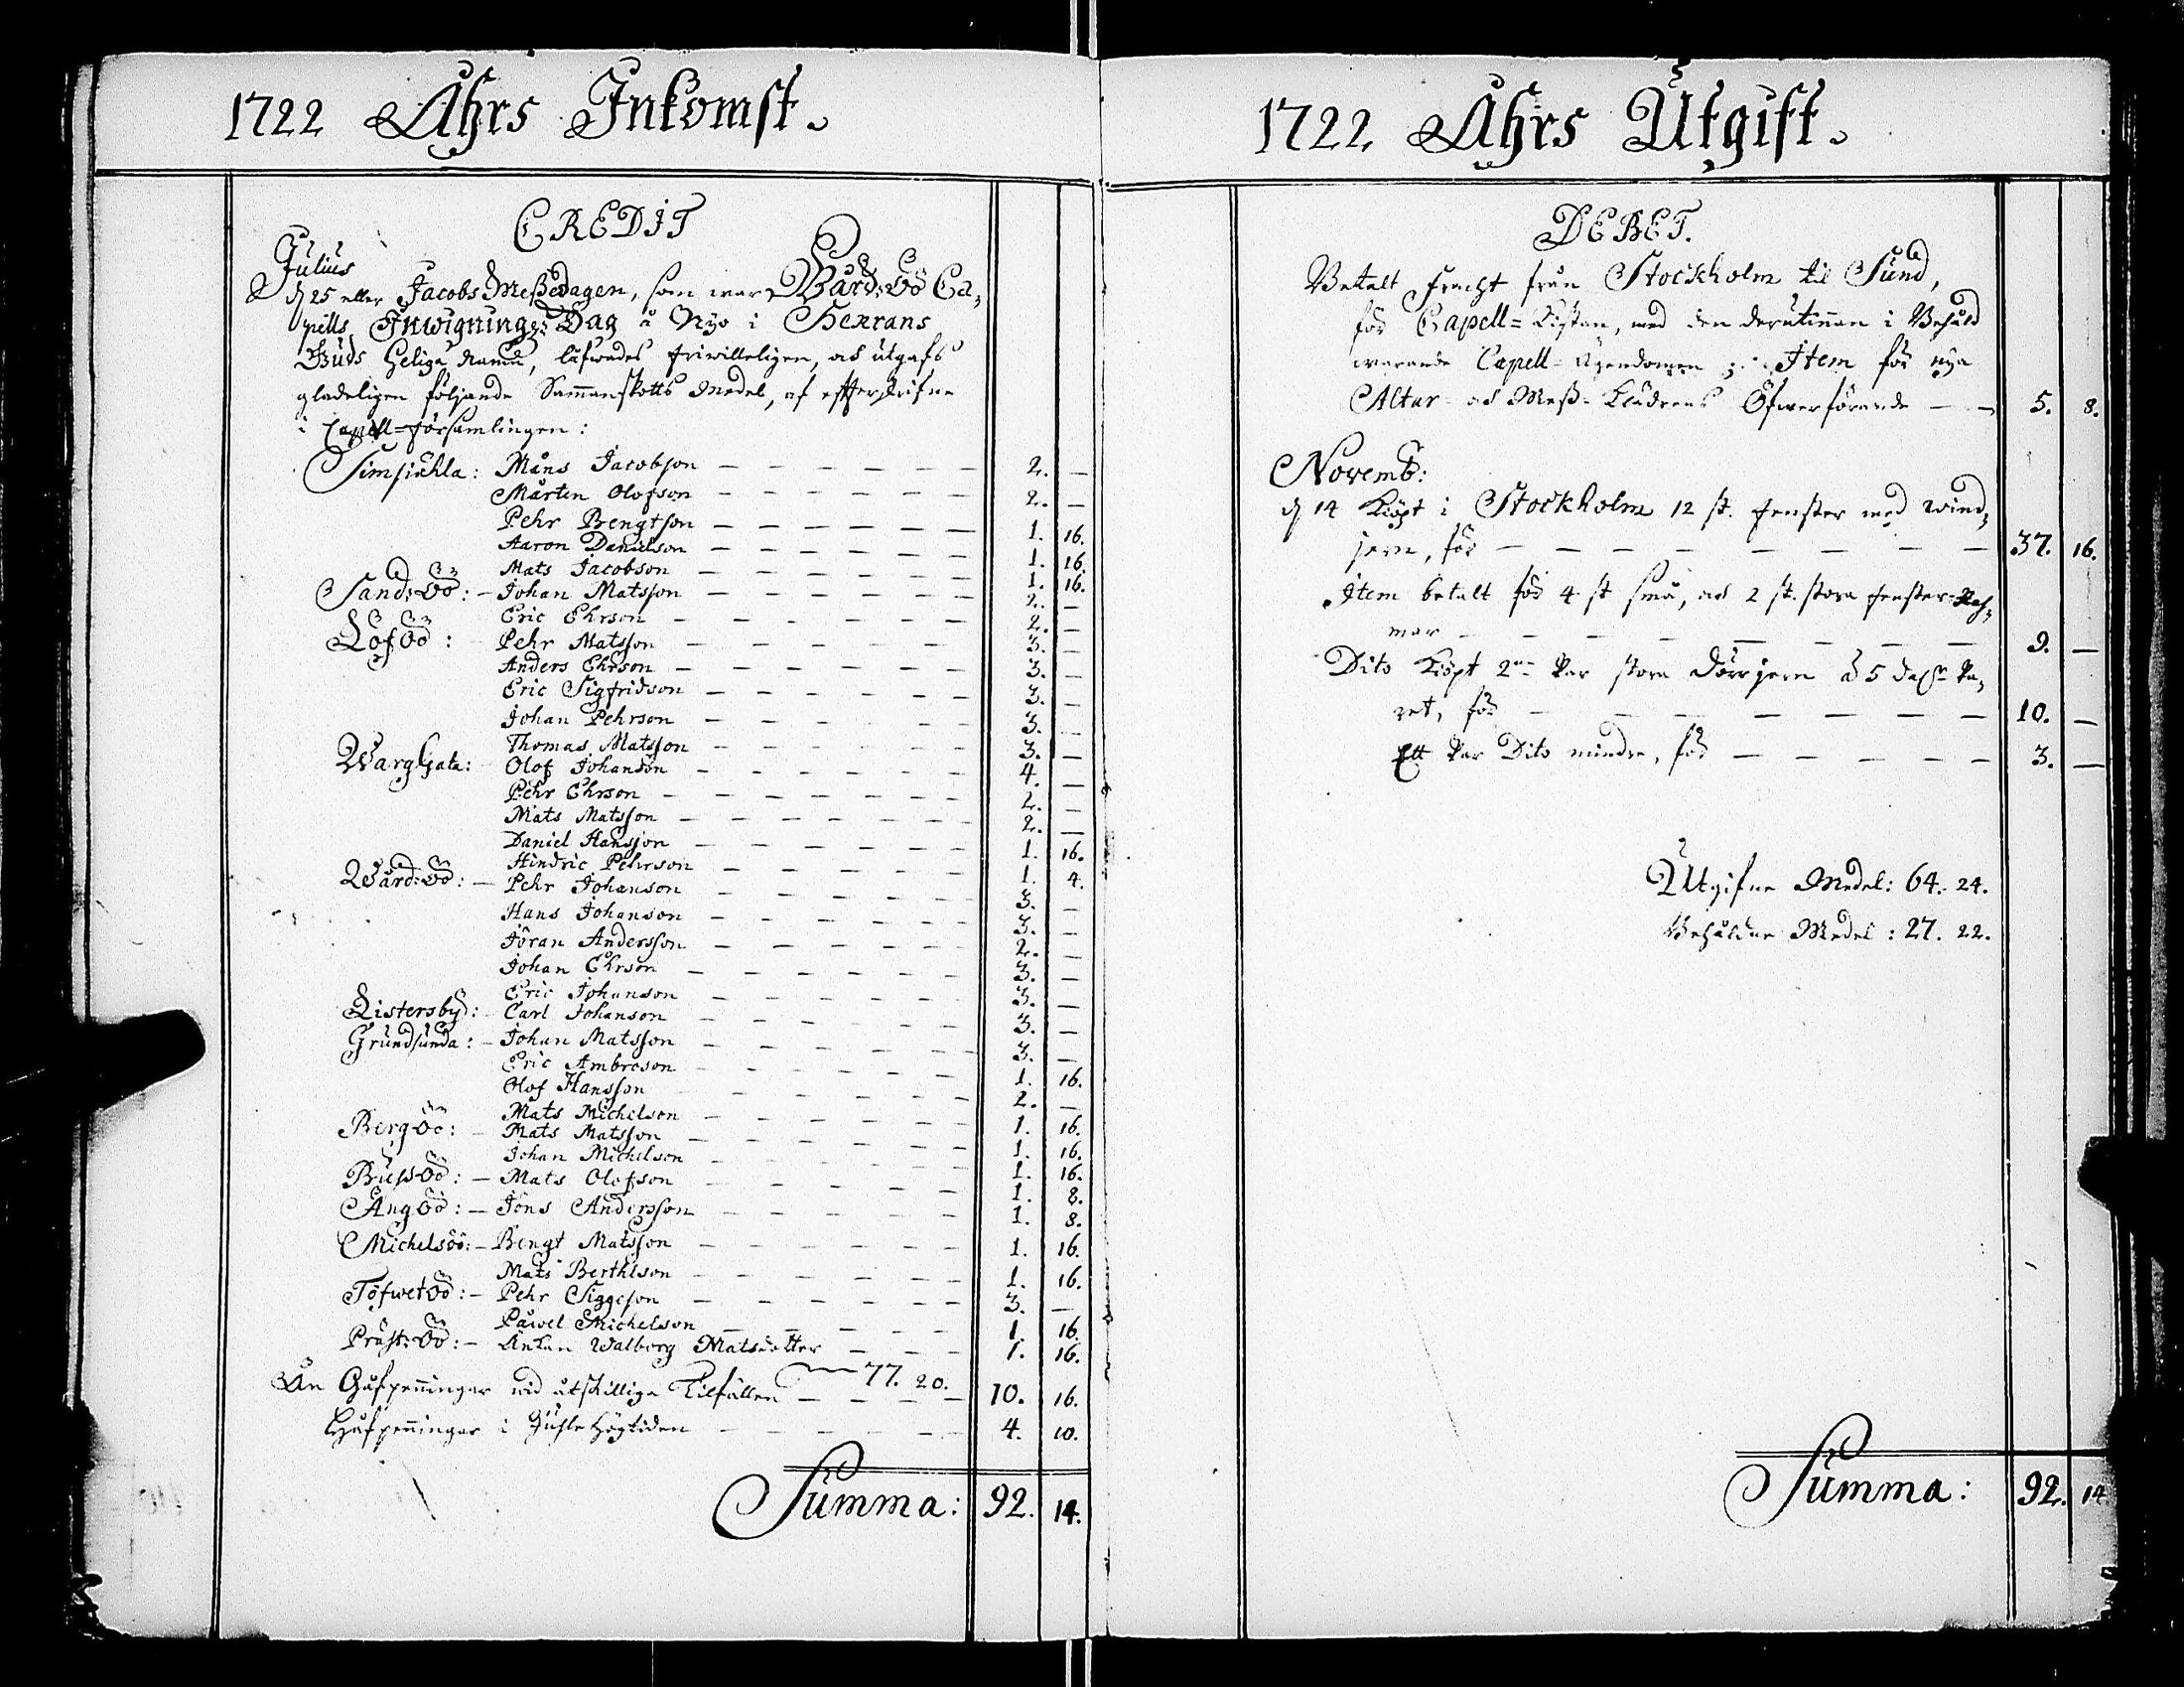 1722 Åhrs Inkomst.
CREDIT
Julius
d 25 eller Jacobs Meßedagen, som war Wård-Öö Ca-
pells Inwignings Dag å Nyo i Herrans
Guds Heliga namn, låfwades friwilleligen, och utgafs
gladeligen följande Sammanskotts Medel, af effterskrifne
i Capell-församlingen:
Simsiähla: Måns Jacobson — 2. —
Mårten Olofson — 2. —
Pehr Bengtson — 1. 16.
Aaron Danielson — 1. 16.
Mats Jacobson — 1. 16.
Sand-Öö: - Johan Matsson — 2. —
Eric Ehrson — 2. —
Löföö: Pehr Matsson — 3. —
Anders Ehrson — 3. —
Eric Sigfridson — 3. —
Johan Pehrson — 3. —
Thomas Matsson — 3. —
Wargata: Olof Johanson — 4. —
Pehr Ehrson — 2. —
Mats Matsson — 2. —
Daniel Hansson — 1. 16.
Hindric Pehrson — 1. 4.
Wård-Öö: - Pehr Johanson — 3. —
Hans Johanson — 3. —
Jöran Andersson — 2. —
Johan Ehrson — 3. —
Eric Johanson — 3. —
Listersby: Carl Johanson — 3. —
Grundsunda: - Johan Matsson — 3. —
Eric Ambroson — 1. 16.
Olof Hansson — 2. —
Mats Michelson — 1. 16.
Bergöö: - Mats Matsson — 1. 16.
Johan Michelson — 1. 16.
Bussöö: - Mats Olofson — 1. 8.
Ängöö: - Jöns Andersson — 1. 8.
Michelsöö: - Bengt Matsson — 1. 16.
Mats Berthlson — 1. 16.
Töfwetöö: - Pehr Siggeson — 3. —
Påwel Michelson — 1. 16.
Präst-Öö: - Änkan Walborg Matsdotter — 1. 16.
77. 20.
Än Håfpenningar wid åtskilliga Tilfällen — 10. 16.
Håfpenningar i Juhle Högtiden — 4. 10.
Summa: 92. 14.
1722 Åhrs Utgift.
DEBET.
Betalt Fracht från Stockholm til Sund,
för Capell-Kistan, med den derutinnan i Behåld
warande Capell-Ägendomen; Item för nya
Altar- och Meß-Klädrens Öfwerförande — 5. 8.
Novemb:
d 14 Köpt i Stockholm 12 st. Fenster med wind-
jern, för — 37. 16.
Item betalt för 4 st små, och 2 st. stora fenster-Rah-
mar — 9. —
Dito Köpt 2ne Par stora Dörrjern à 5 dahlr Pa-
ret, för — 10. —
Ett Par Dito mindre, för — 3. —
Utgifne Medel: 64. 24.
Behåldne Medel: 27. 22.
Summa: 92. 14